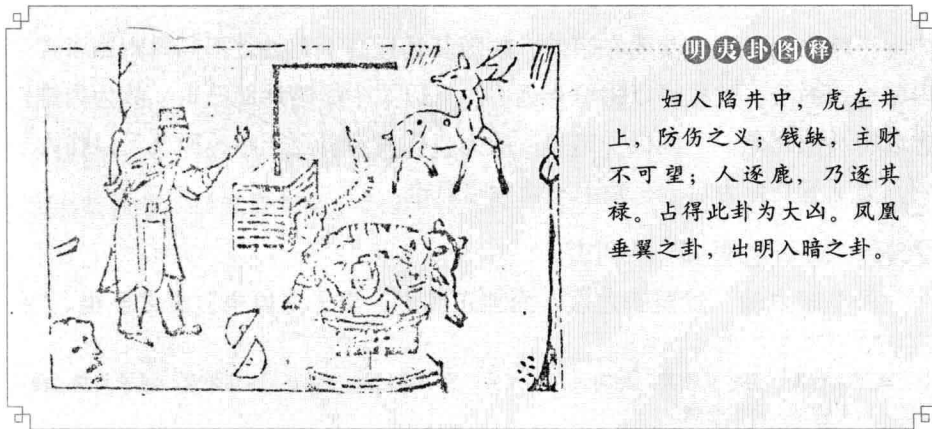 明夷卦图释
妇人陷井中，虎在井
上，防伤之义；钱缺，主财
不可望；人逐鹿，乃逐其
禄。占得此卦为大凶。凤凰
垂翼之卦，出明入暗之卦。